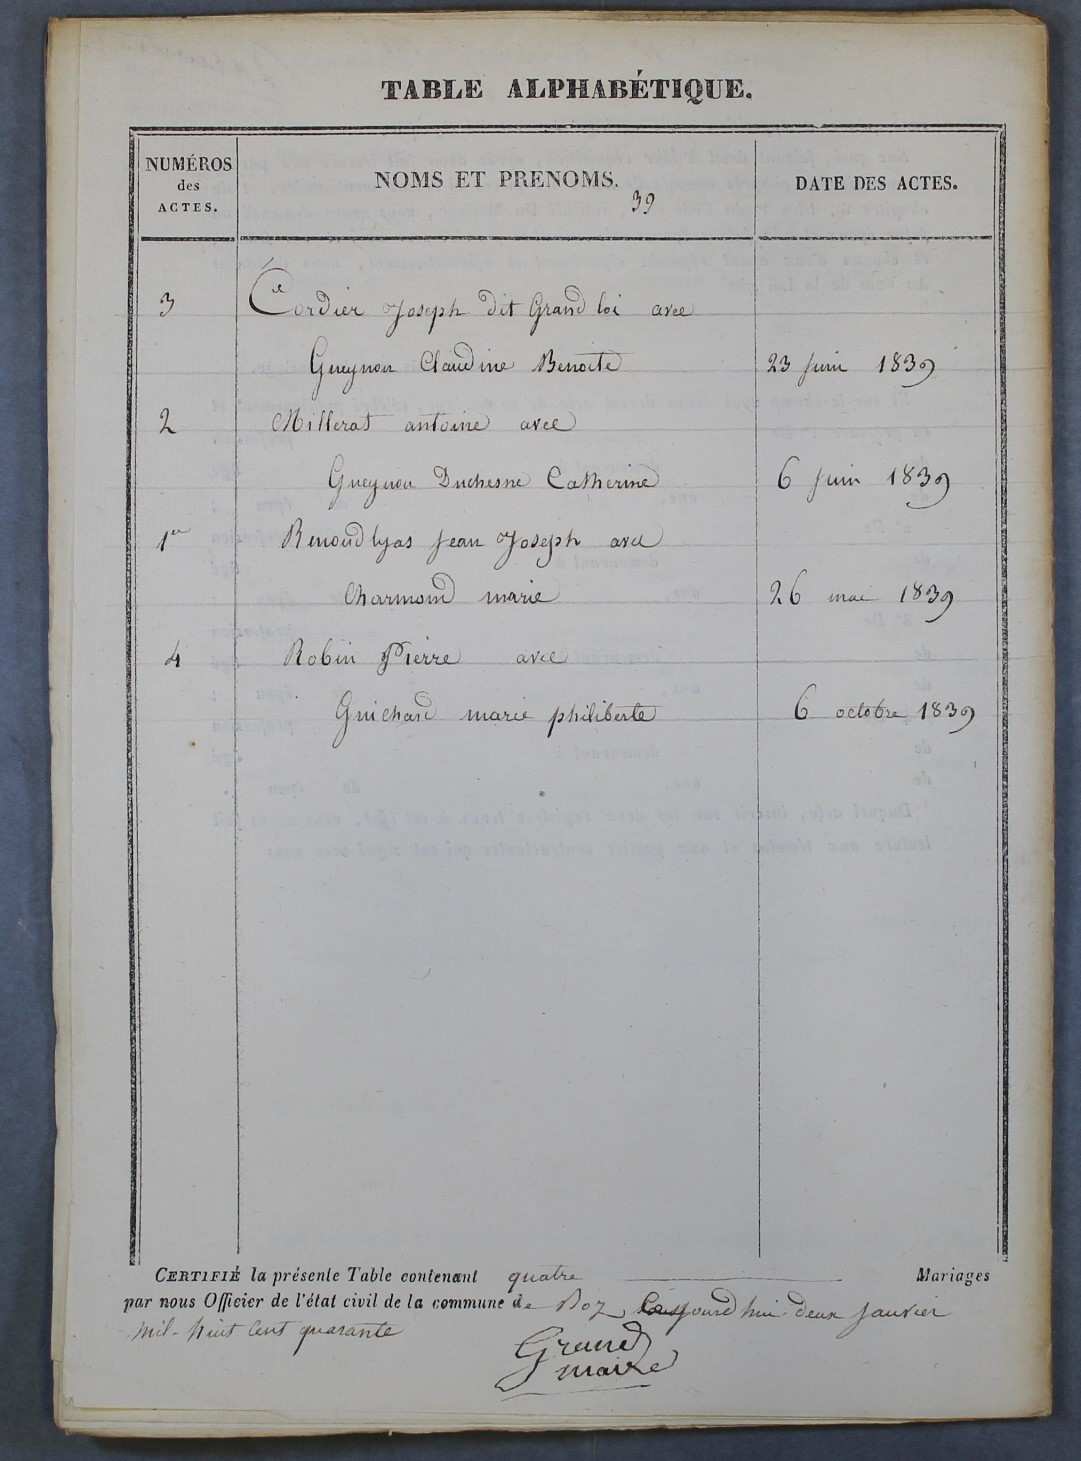 TABLE ALPHABÉTIQUE.
NUMÉROS des ACTES.
NOMS ET PRENOMS.
39
DATE DES ACTES.
3 Cordier Joseph dit Grand loi avec
Gueynon Claudine Benoite 23 juin 1839
2 Millerat antoine avec
Gueynon Duchesne Catherine 6 juin 1839
1er Renoud lyas jean Joseph avec
Charmond marie 26 mai 1839
4 Robin Pierre avec
Guichard marie philiberte 6 octobre 1839
CERTIFIÉ la présente Table contenant quatre Mariages
par nous Officier de l'état civil de la commune de Boz jourd'hui deux janvier
mil-huit cent quarante
Grand
maire